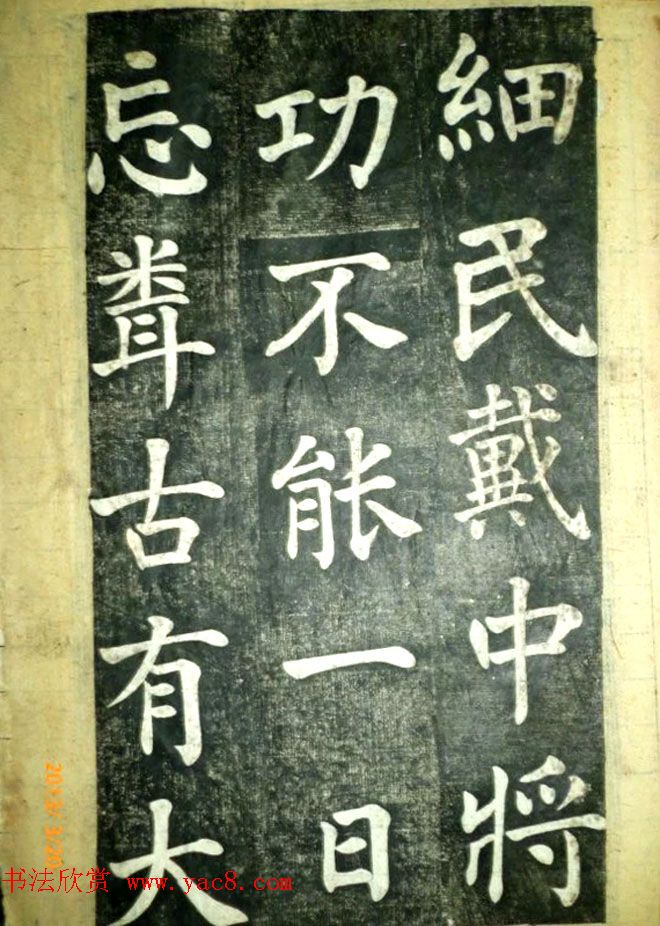 細民戴中將
功不能一日
忘 古有大
2013/ 3/20
书法欣赏 www.yac8.com